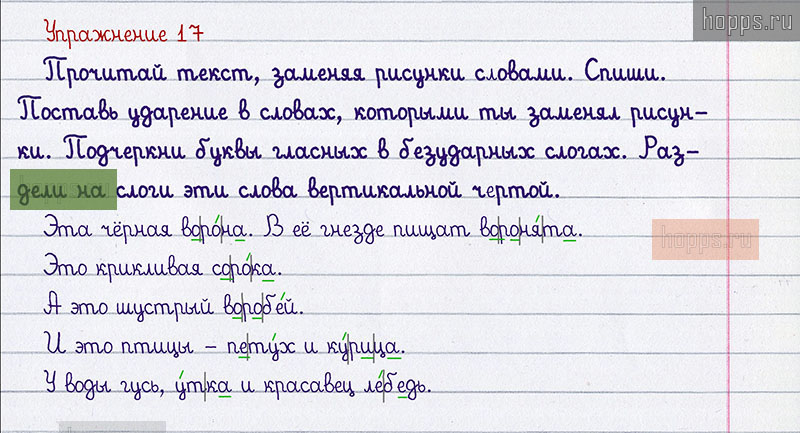 hopps.ru
Упражнение 17
Прочитай текст, заменяя рисунки словами. Спиши.
Поставь ударение в словах, которыми ты заменял рисун-
ки. Подчеркни буквы гласных в безударных слогах. Раз-
дели на слоги эти слова вертикальной чертой.
Эта чёрная во|ро́|на. В её гнезде пищат во|ро|ня́|та.
hopps.ru
Это крикливая со|ро́|ка.
А это шустрый во|ро|бе́й.
И это птицы – пе|ту́х и ку́|ри|ца.
У воды гусь, у́т|ка и красавец ле́|бедь.